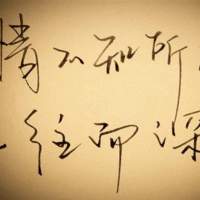 情不知所
往而深